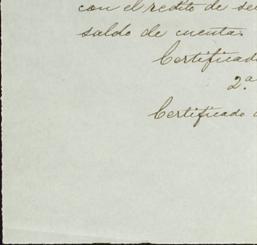 con el redito de se
saldo de cuenta.
Certificad
2.ª
Certificado